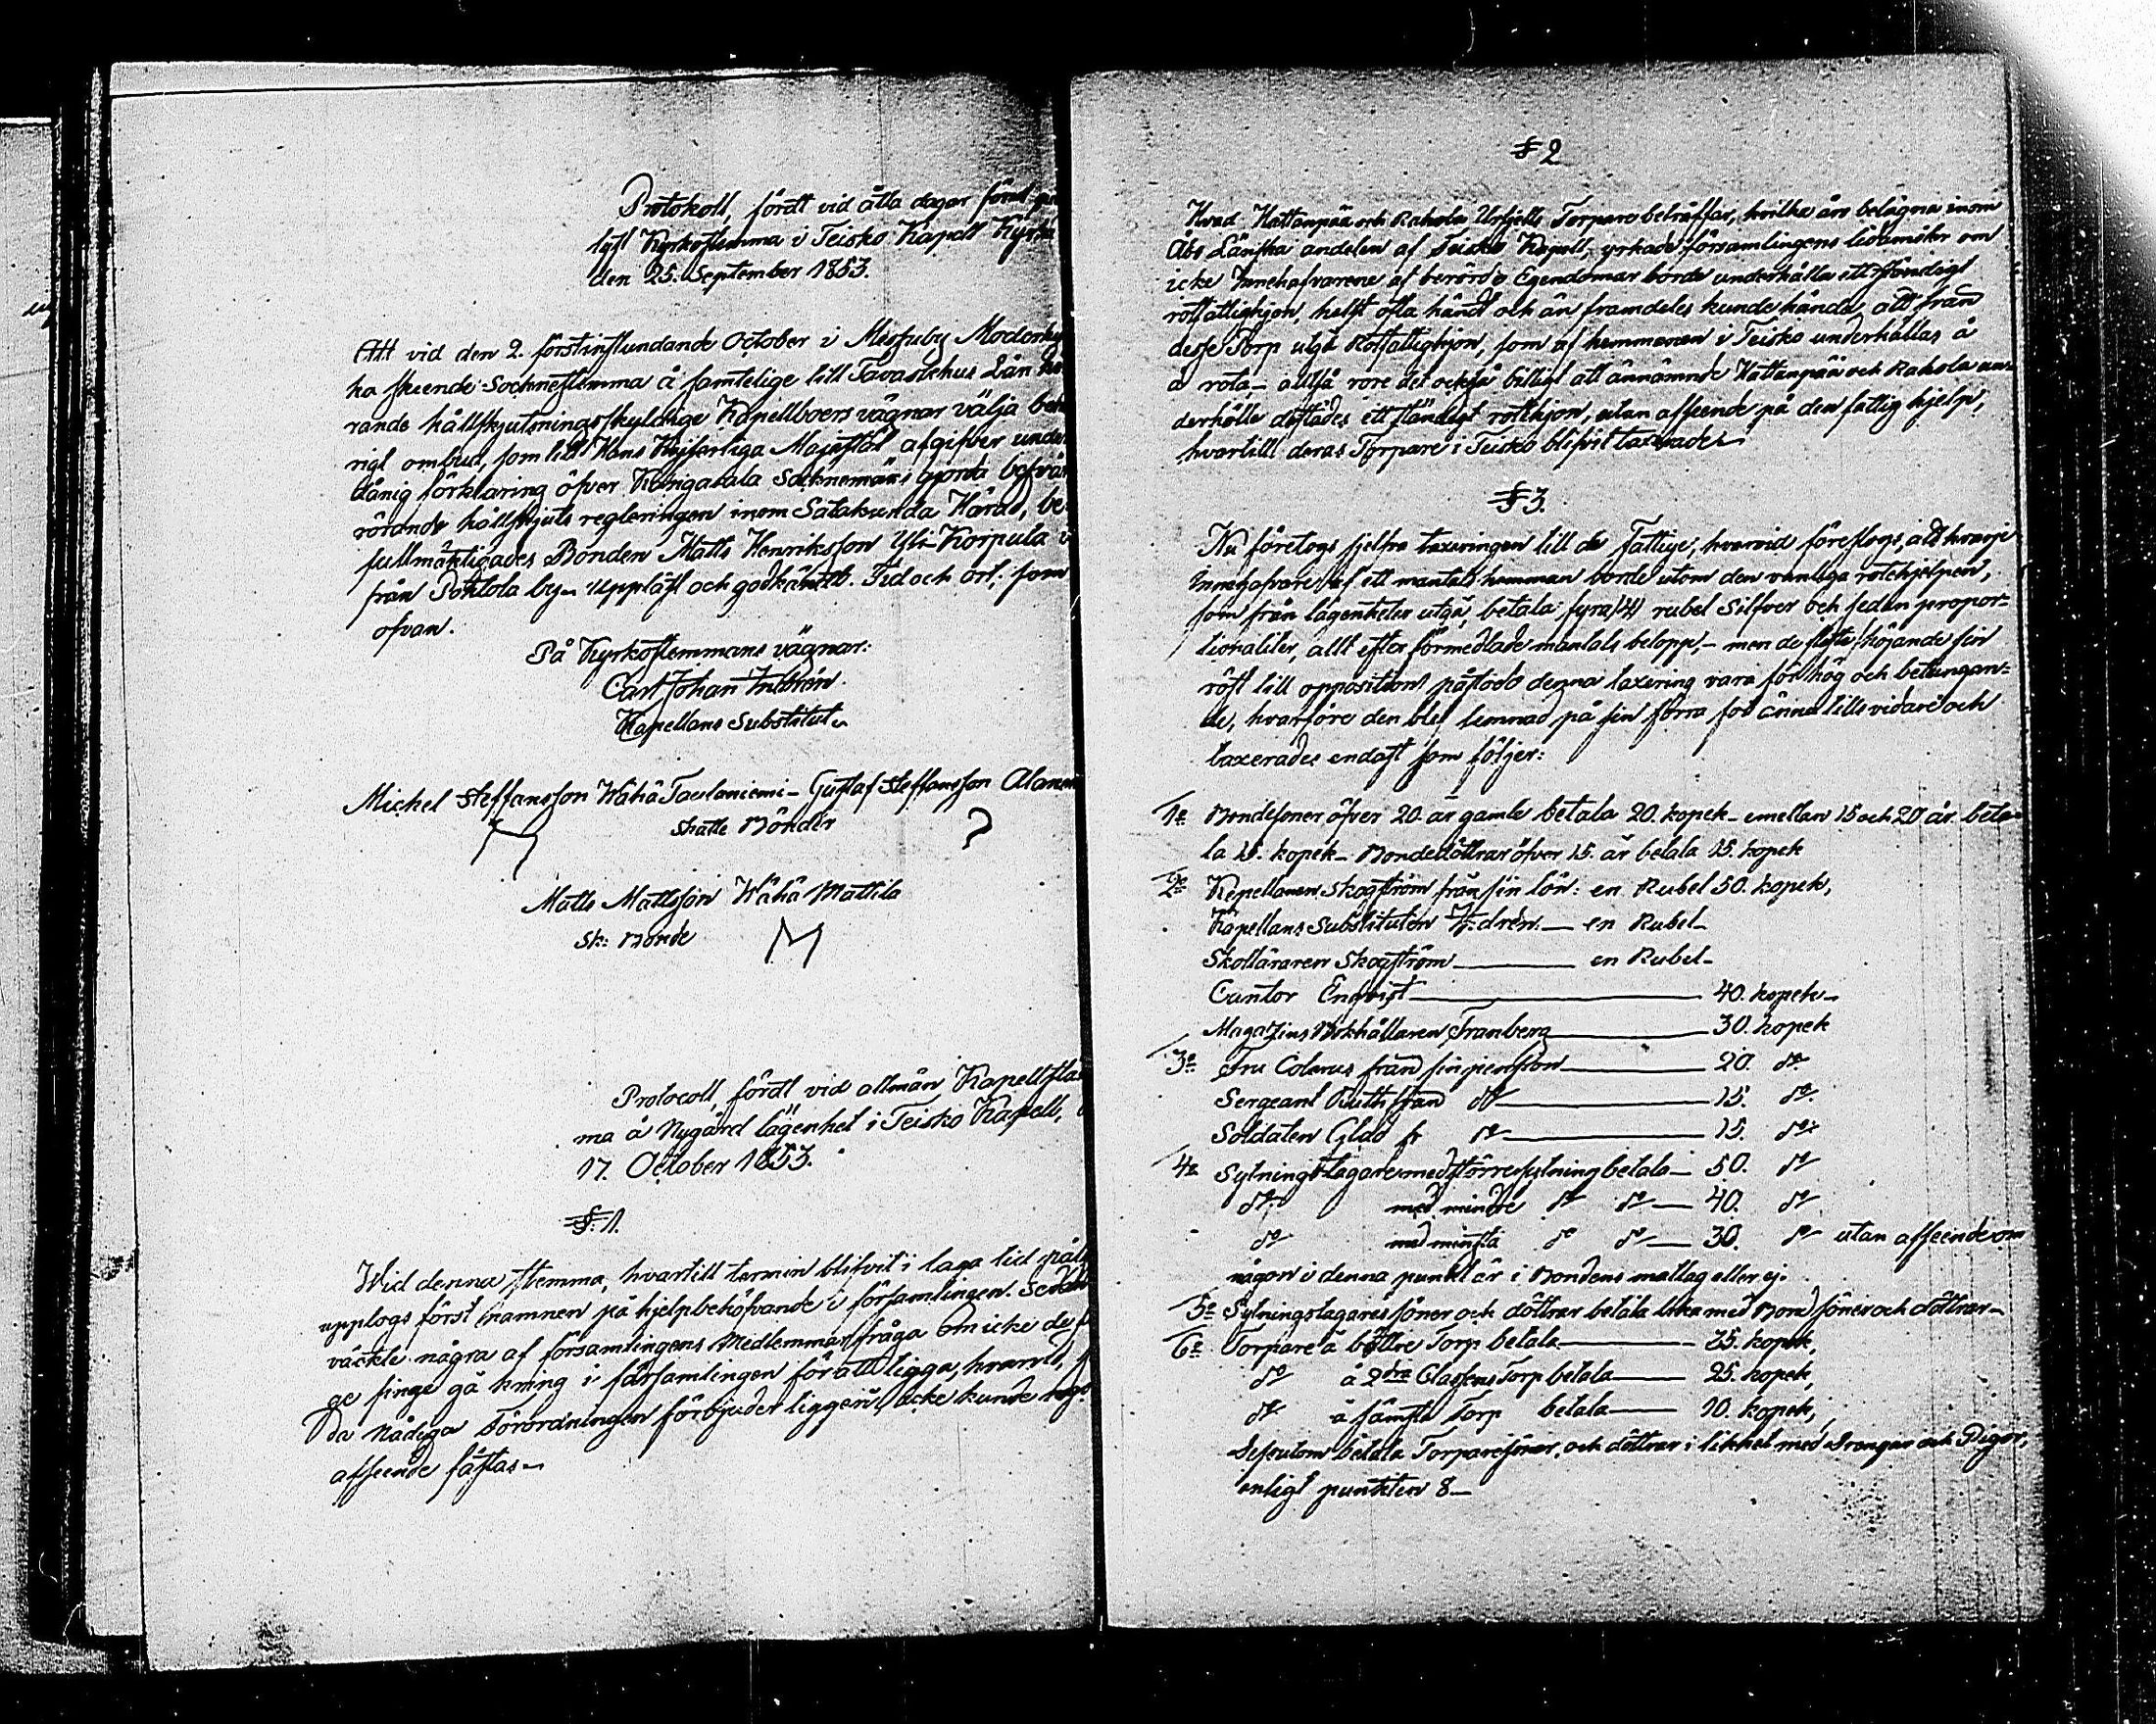 Protokoll, fördt vid åtta dagar förut
lyst Kyrkostemma i Teisko Kapell Kyrka
den 25. September 1853.
Att vid den 2. förstinstundande October i Messuby Moderky
ka skeende Sochnestemma å samtelige till Tavastehus Län hö
rande hållskjutsningsskyldige Kapellboers vägnar välja
rigt ombud, som till Hans Kejserliga Majestät afgifver under
dånig förklaring öfver Kangasala Socknemäns gjorda besvär
rörande hållskjuts regleringen inom Satakunda Härad, be
fullmäktigades Bonden Matts Henriksson Yli Korpula
från Pohtola by. Uppläst och godkändt. Tid och ort, som
ofvan.
På Kyrkostemmans vägnar:
Carl Johan Indrén
Kapellans Substitut
Michel Steffansson Wähä Taulaniemi - Gustaf Steffansson Alanen
Skatte Bönder
Matts Mattsson Wähä Mattila
Sk: Bonde
Protocoll, fördt vid allmän Kapellstäm
ma å Nygård lägenhet i Teisko Kapell,
17. October 1853.
§. 1.
Wid denna stemma, hvartill termin blifvit i laga tid pålyst
upptogs först namnen på hjelpbehöfvande i församlingen. Sedan
väckte några af församlingens Medlemmar fråga om icke de
ge finge gå kring i församlingen för att ligga, hvarvid,
da Nådiga Förordningen förbjuder liggeri, icke kunde
afseende fästas
§ 2
Hvad Hattanpää och Rahola Urfjells Torpare beträffar, hvilka äro belägna inom
Åbo Länska andelen af Teisko Kapell, yrkade församlingens ledamöter om
icke Innehafvarene af berörde Egendomar borde underhålla ett ständigt
rotfattighjon, helst ofta händt och än framdeles kunde hända, att från
desse Torp utgå Rotfattighjon, som af hemmanen i Teisko underhållas å
a rota - alltså vore det också billigt att ännämnde Hattanpää och Rahola un-
derhölle dessades ett ständigt rotehjon, utan afseende på den fattig hjelp,
hvartill deras Torpare i Teisko blifvit taxerade
§ 3.
Nu företogs sjelfva taxeringen till de Fattige, hvarvid föreslogs, att hvarje
Innehafvare af ett mantals hemman borde utom den vanliga rotehjelpen,
som från lägenheter utgå, betala fyra (4) rubel Silfver och sedan propor-
tionaliter, allt efter förmedlade mantals belopp, - men de fleste höjande sin
röst till opposition påstodo denna taxering vara för hög och betungan-
de, hvarföre den blef lemnad på sin förra fot ännu tills vidare och
taxerades endast som följer:
1o Bondesöner öfver 20. år gamle betala 20. kopek - emellan 15 och 20 år beta-
la 15. kopek - Bondedöttrar öfver 15. år betala 15. kopek
2o Kapellanen Skogström från sin lön: en Rubel 50. kopek,
Kapellans Substituten Indrén - en Rubel
Skolläraren Skogström - en Rubel
Cantor Enqvist - 40. kopek
Magazins Bokhållaren Franberg - 30. kopek
3o Fru Colerus från sin pension - 20. do
Sergeant Ruth från do - 15. do
Soldaten Glad fr do - 15. do
4o Sytningstagare med större sytning betala - 50. do
do med mindre do do - 40. do
do med minsta do do - 30. do utan afseende om
någon i denna punkt är i Bondens matlag eller ej.
5o Sytningstagares söner och döttrar betala lika med Bond söner och döttrar
6o Torpare å bättre Torp betala - 35. kopek,
do å 2dra Classens Torp betala - 25. kopek,
do å sämsta Torp betala - 10. kopek,
Dessutom betala Torparesöner och döttrar i likhet med Drängar och Pigor,
enligt punkten 8